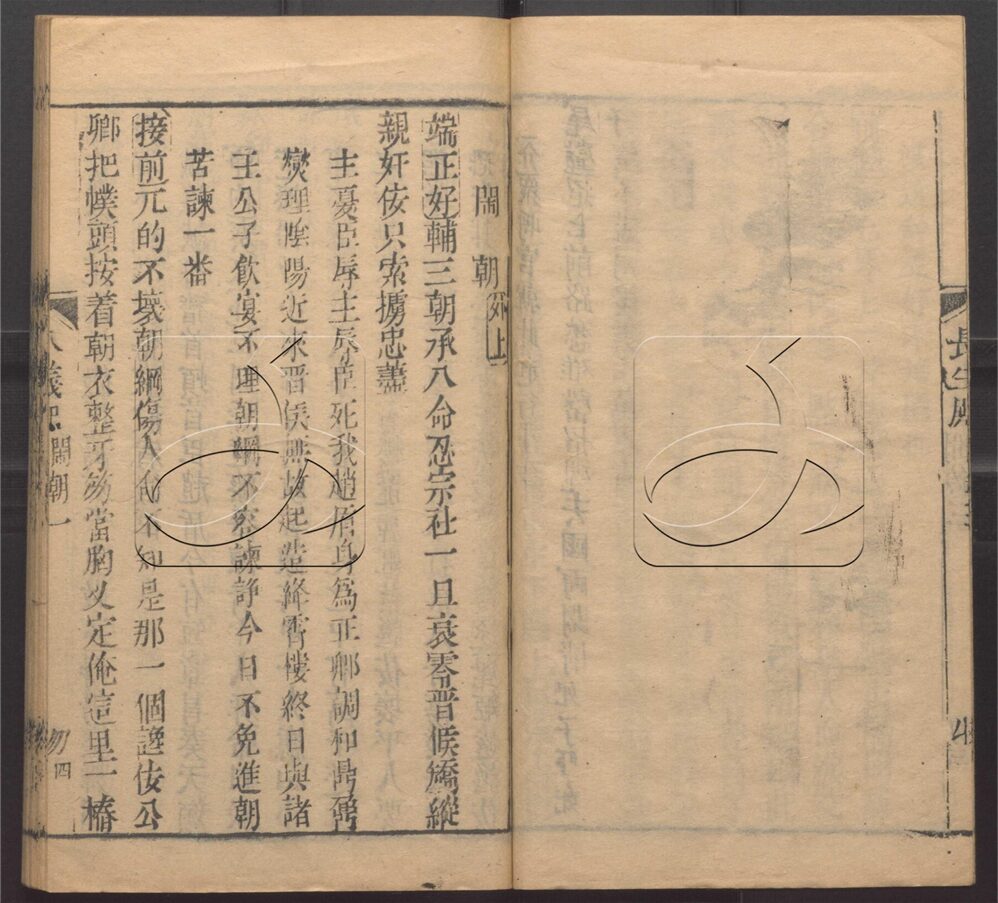 長生殿
鬧朝 外上
端正好輔三朝承八命忍宗社一旦哀零晋候驕縱
親奸佞只索擄忠藎
主憂臣辱主辱臣死我趙盾身為正卿調和鼎鼐
爕理陰陽近來晋侯無故起造絳霄樓終日與諸
王公子飲宴不理朝綱不容諫諍今日不免進朝
苦諫一番
接前元的不壊朝綱傷人命不知是那一個讒佞公
卿把幞頭按着朝衣整牙笏當胸乂定俺這里一樁
八義記 鬧朝一
四